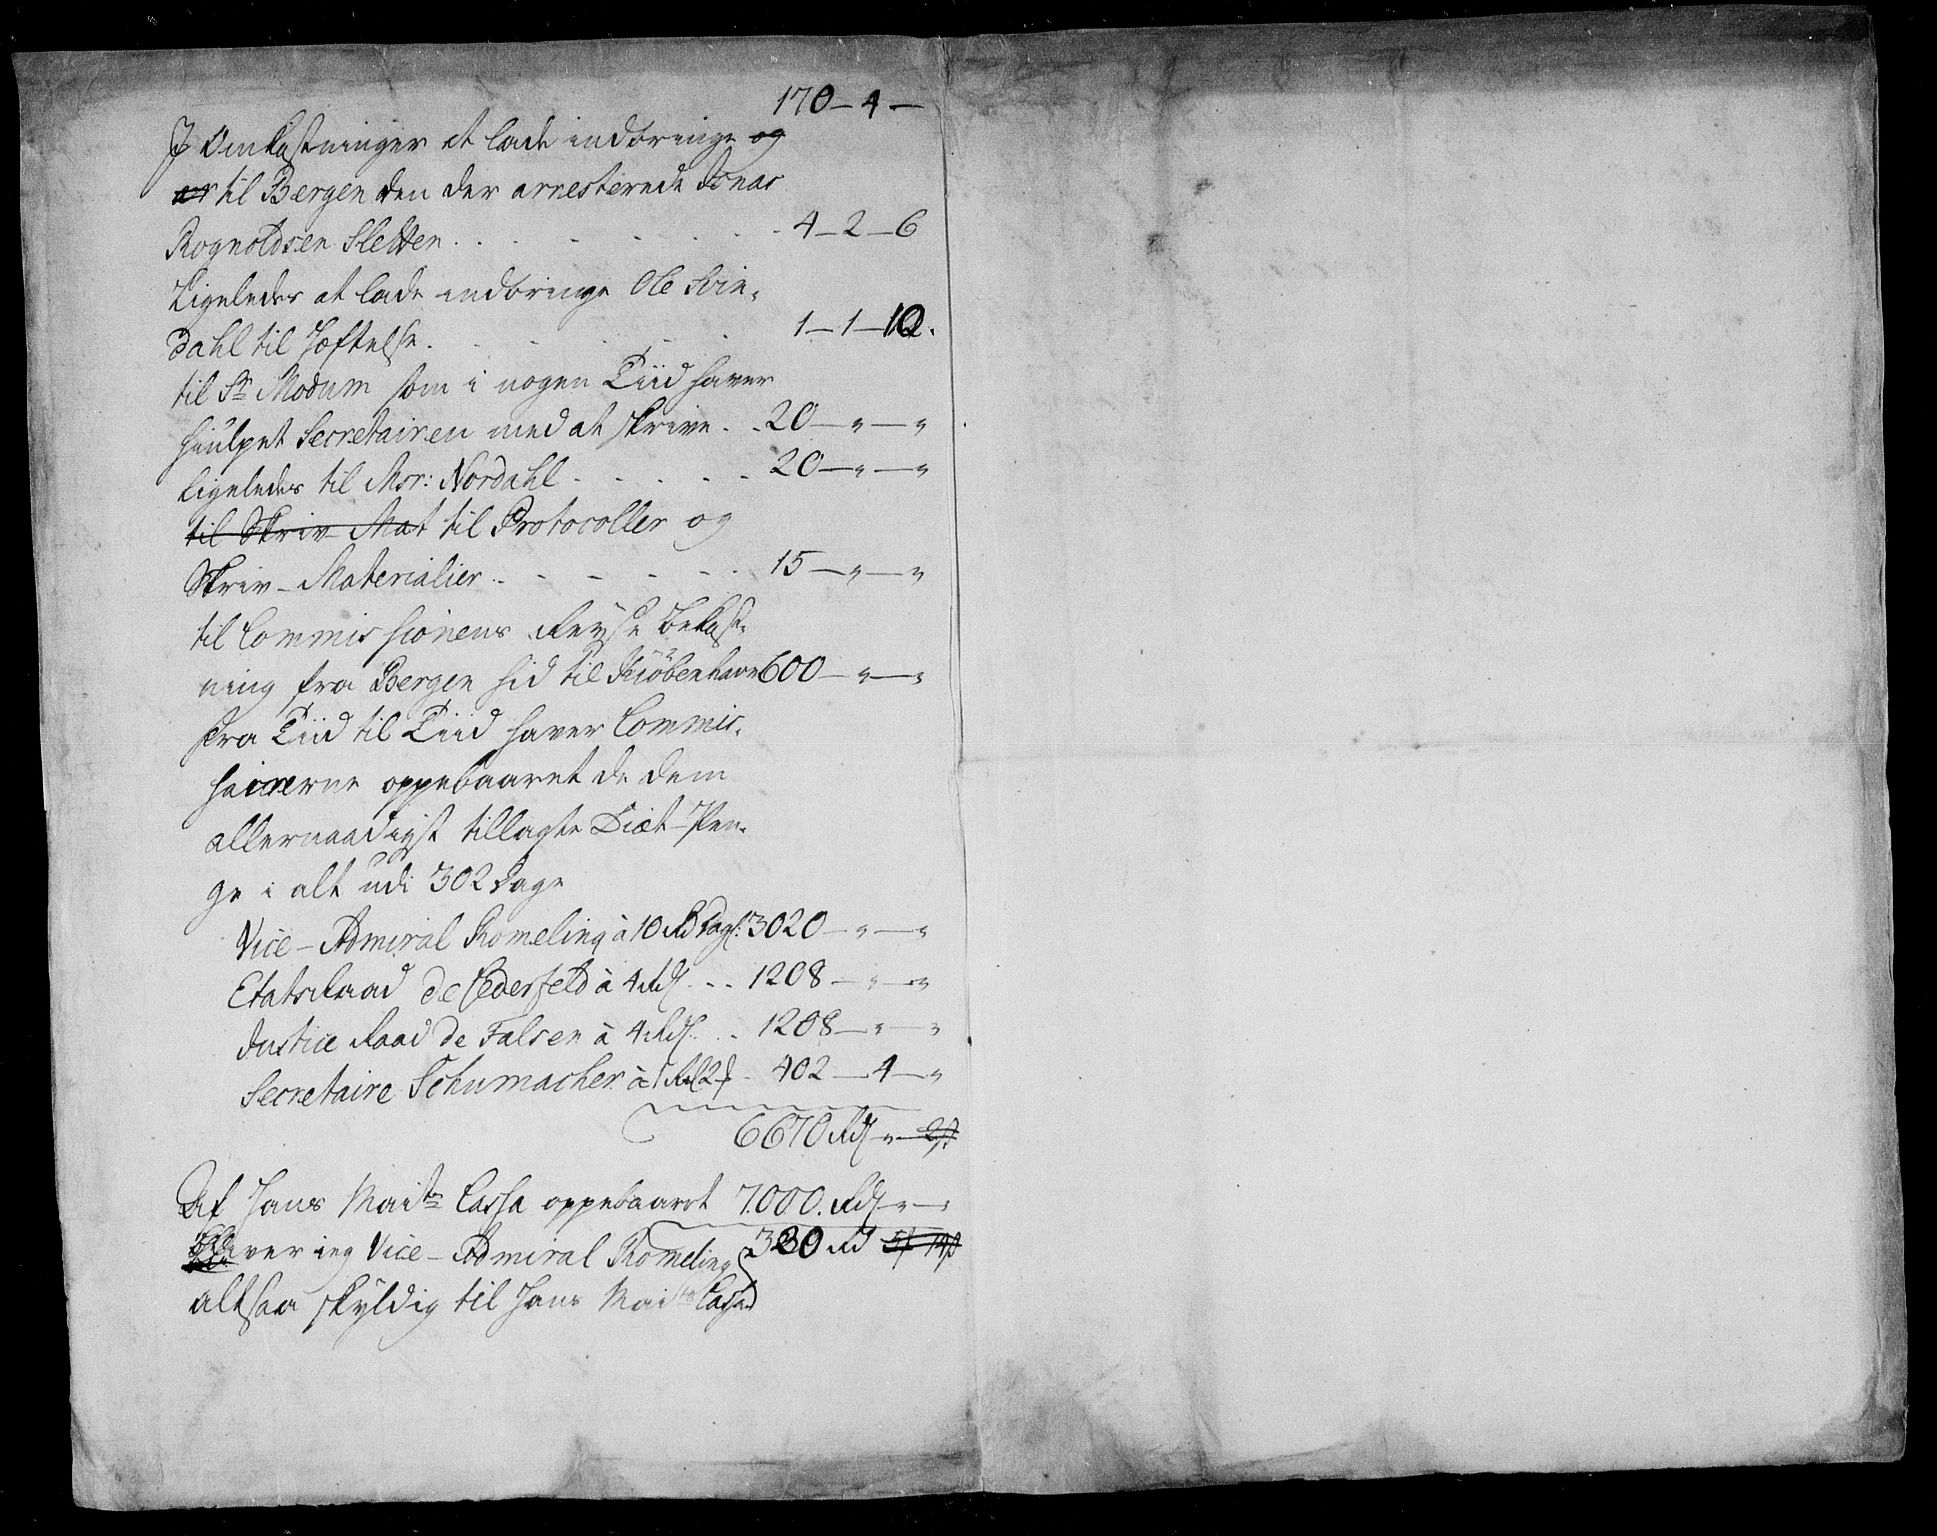 170 — 4 —
I Omkostninger at lade indbringe og
til Bergen den der arresterede Jonas
Rognoldsen Sletten . . . . . . . 4 — 2 — 6
Ligeledes at lade indbringe Ole Svin-
dahl til Hæftelse . . . . . . 1 — 1 — 10.
til Sr Modum som i nogen Tiid haver
hiulpet Secretairen med at skrive . . 20 — " — "
ligeledes til Msr: Nordahl . . . . . 20 — " — "
til Skriv-Mat til Protocoller og
Skriv-Materialier . . . . . . 15 — " — "
til Commissionens Reyse Bekost-
ning fra Bergen hid til Kiöbenhavn 600 — " — "
fra Tiid til Tiid haver Commis-
sairerne oppebaaret de dem
allernaadigst tillagte Diæt-Pen-
ge i alt udi 302 Dage
Vice-Admiral Romeling à 10 Rd Dagl: 3020 — " — "
Etats Raad de Cederfeld à 4 Rdl . . . 1208 — " — "
Justice Raad de Falsen à 4 Rdl . . . 1208 — " — "
Secretaire Schumacher à 1 Rdl 2 ƒ . 402 — 4 — "
6670 Rdl — " — 2 ß
Af Hans Maits Cassa oppebaaret 7000. Rdl — " — "
bliver ieg Vice-Admiral Romeling 330 Rd
altsaa skyldig til Hans Maits Cassa